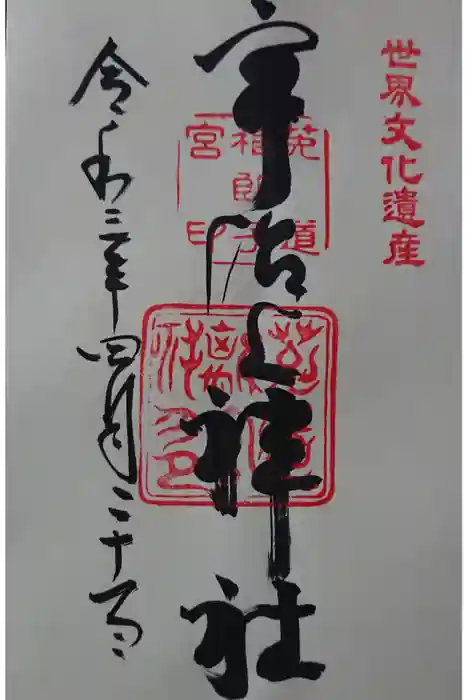 世界文化遺産
宇治上神社
菟道
稚郎子
宮印
令和三年四月二十日